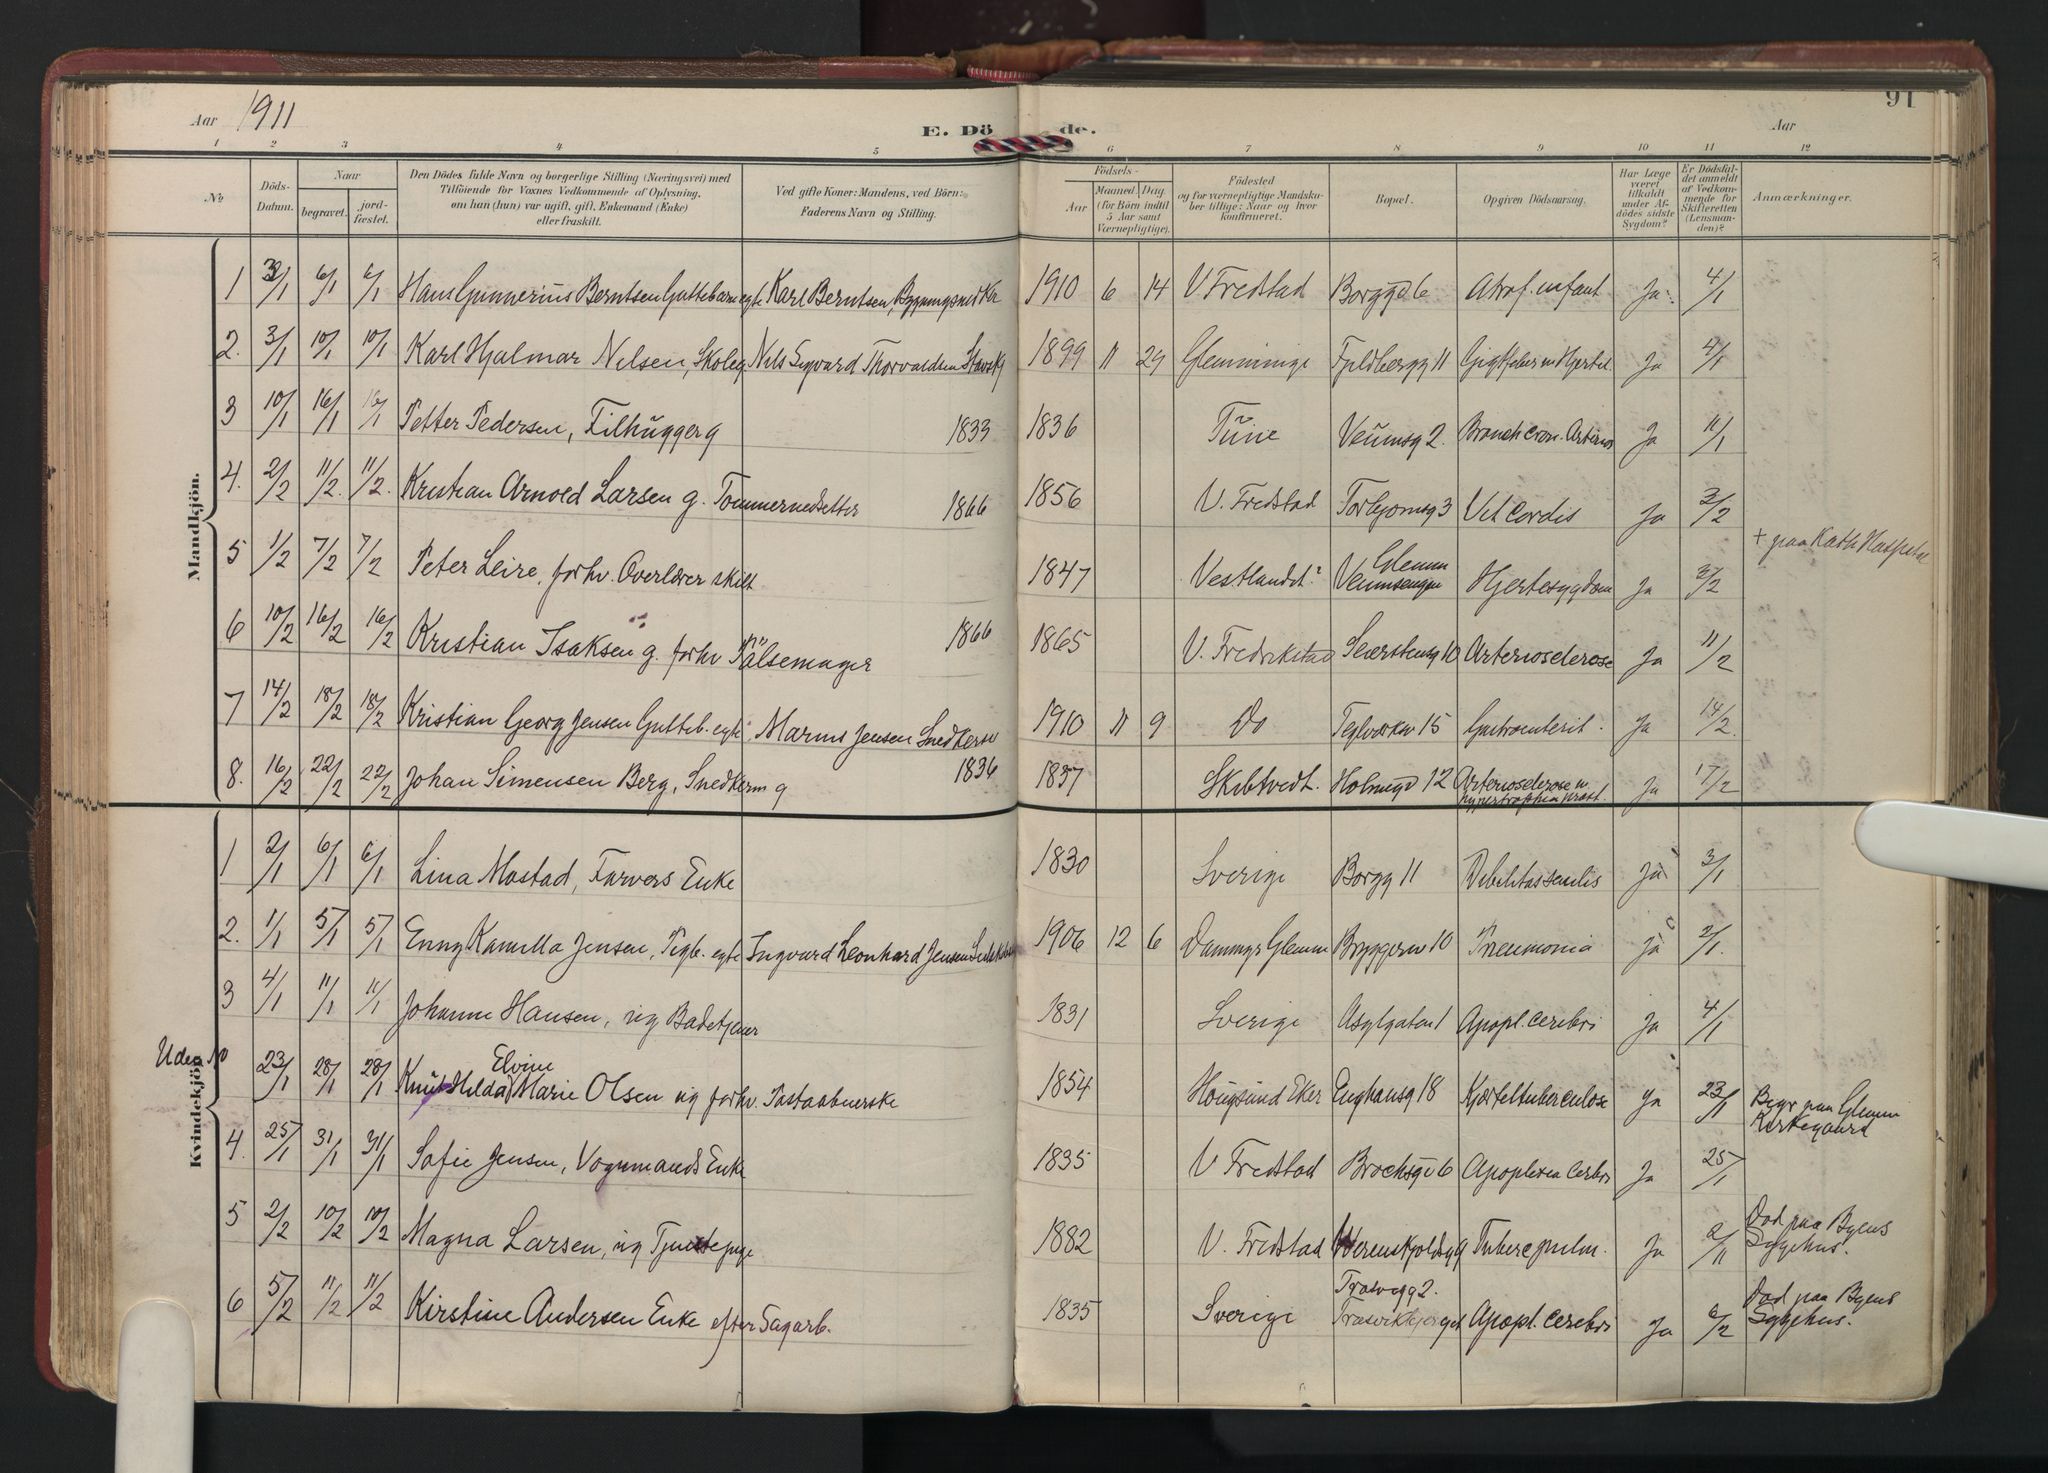 91
Aar 1911
E. Dö de.
Aar
1 2 3 4 5 6 7 8 9 10 11 12
No
Döds-Datum.
Naar
begravet.
jord-fæstet.
Den Dödes fulde Navn og borgerlige Stilling (Næringsvei) med
Tilföiende for Voxnes Vedkommende af Oplysning,
om han (hun) var ugift, gift, Enkemand (Enke)
eller fraskilt.
Ved gifte Koner: Mandens, ved Börn:
Faderens Navn og Stilling.
Födsels-
Aar
Maaned Dag
(for Börn indtil
5 Aar samt
Værnepligtige).
Födested
og for værnepligtige Mandsku-
ber tillige: Naar og hvor
konfirmeret.
Bopæl.
Opgiven Dödsaarsag.
Har Læge
været
tilkaldt
under Af-
dödes sidste
Sygdom?
Er Dödsfal-
det anmeldt
af Vedkom-
mende for
Skifteretten
(Lensman-
den)?
Anmærkninger.
Mandkjön.
1 3/1 6/1 6/1 Hans Gunnerius Berntsen Guttebarn egte Karl Berntsen, 1910 6 14 V Fredstad Borggd 6 Atrof. infant Ja 4/1
2. 3/1 10/1 10/1 Karl Hjalmar Nelsen, Skoleg Nels Sigvard Thorvaldsen 1899 11 29 Glemminge Fjeldbergg 11 Ja 4/1
3 10/1 16/1 16/1 Petter Pedersen, Filhugger g 1833 1836 Tune Veumsg 2. Bronch cron. Ja 11/1
4. 2/2 11/2. 11/2. Kristian Arnold Larsen g. Tommernedsetter 1866 1856 V. Fredstad Torbjornsg 3 Vit Cordis Ja 3/2
5 1/2 7/2 7/2 Peter Leire, forhv. Overlærer skilt 1847 Vestlandet? Glemm Veumsengen Hjertesygdom Ja 3/2 + paa Kath Hospital
6 10/2 16/2 16/2 Kristian Isaksen g. forhv Pålsemager 1866 1865 V. Fredrikstad 10 Arteriosclerose Ja 11/2
7 14/2 18/2 18/2 Kristian Georg Jensen Gutteb. egte, Marius Jensen Snedkersv 1910 11 9 Do Teglverksv 15 Gastroenterit. Ja 14/2.
8. 16/2 22/2 22/2 Johan Simensen Berg, Snedkerm g 1836 1837 Skibtvedt. Holmegd 12 Arteriosclerose m hypertrophia prost. Ja 17/2
Kvindekjön.
1 2/1 6/1 6/1 Lina Mostad, Farvers Enke 1830 Sverige Borgg 11 Debilitas senilis Ja 3/1
2. 1/1 5/1 5/1 Enny Kamilla Jensen, Pigb. egte Ingvard Leonhard Jensen 1906 12 6 Dammyr Glemm Bryggeriv 10 Pneumonia ja 2/1.
3 4/1 11/1 11/1 Johanne Hansen, ug 1831 Sverige Asylgaten 1 Apopl. cerebri Ja 4/1
Uden No 23/1 28/1 28/1 Knut Hilda Elvine Marie Olsen ug forhv. 1854 Hougsund Eker Enghausg 18 Kjærteltuberculose Ja 23/1 Begr paa Glemm Kirkegaard
4. 25/1 31/1 31/1 Sofie Jensen, Vognmands Enke 1835 V Fredstad Brochsgd 6 Apoplexia Cerbri Ja 25/1
5 2/2 10/2 10/2 Magna Larsen, ug Tjenstepige 1882 V. Fredstad Werenskjoldsg 9 Tuberc pulm. Ja Død paa Byens Sygehus.
6 5/2 11/2 11/2 Kirstine Andersen Enke efter Sagarb. 1835 Sverige Trasvigg 2. Apopl. Cerebri Ja 6/2 Død paa Byens Sygehus.